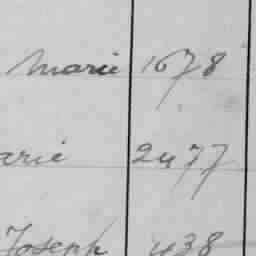 Marie 1678
arie 2477
Joseph 438